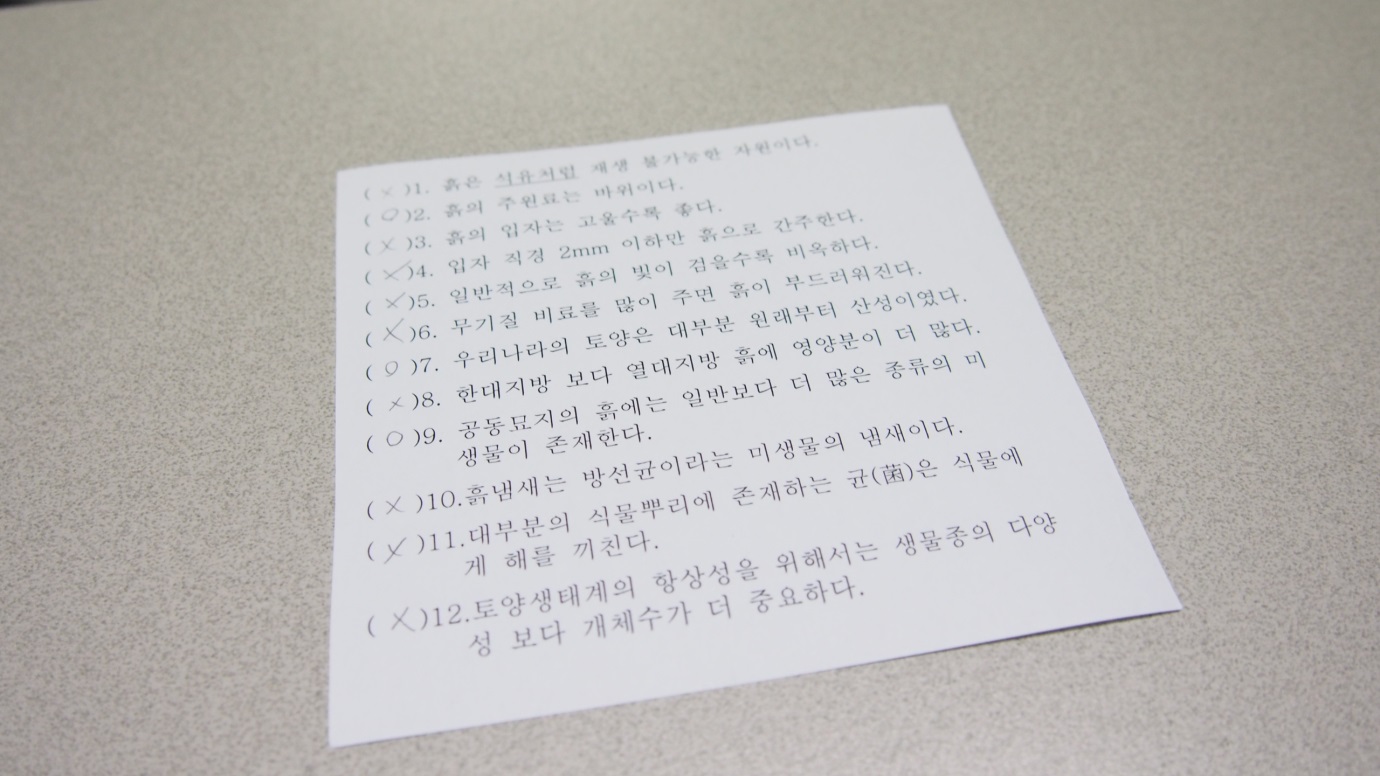 ( × )1. 흙은 석유처럼 재생 불가능한 자원이다.
( ○ )2. 흙의 주원료는 바위이다.
( × )3. 흙의 입자는 고울수록 좋다.
( × )4. 입자 직경 2mm 이하만 흙으로 간주한다.
( × )5. 일반적으로 흙의 빛이 검을수록 비옥하다.
( × )6. 무기질 비료를 많이 주면 흙이 부드러워진다.
( ○ )7. 우리나라의 토양은 대부분 원래부터 산성이였다.
( × )8. 한대지방 보다 열대지방 흙에 영양분이 더 많다.
( ○ )9. 공동묘지의 흙에는 일반보다 더 많은 종류의 미
생물이 존재한다.
( × )10.흙냄새는 방선균이라는 미생물의 냄새이다.
( × )11.대부분의 식물뿌리에 존재하는 균(菌)은 식물에
게 해를 끼친다.
( × )12.토양생태계의 항상성을 위해서는 생물종의 다양
성 보다 개체수가 더 중요하다.